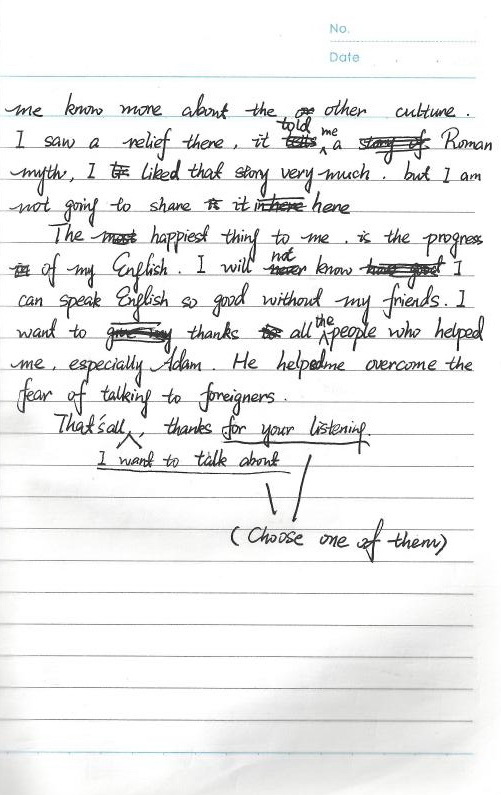 No.
Date
me know more about the other culture.
I saw a relief there, it told me a Roman
myth, I liked that story very much. but I am
not going to share it here
The happiest thing to me, is the progress
of my English. I will not know I
can speak English so good without my friends. I
want to thanks all the people who helped
me, especially Adam. He helped me overcome the
fear of talking to foreigners.
That's all, thanks for your listening.
I want to talk about
(Choose one of them)